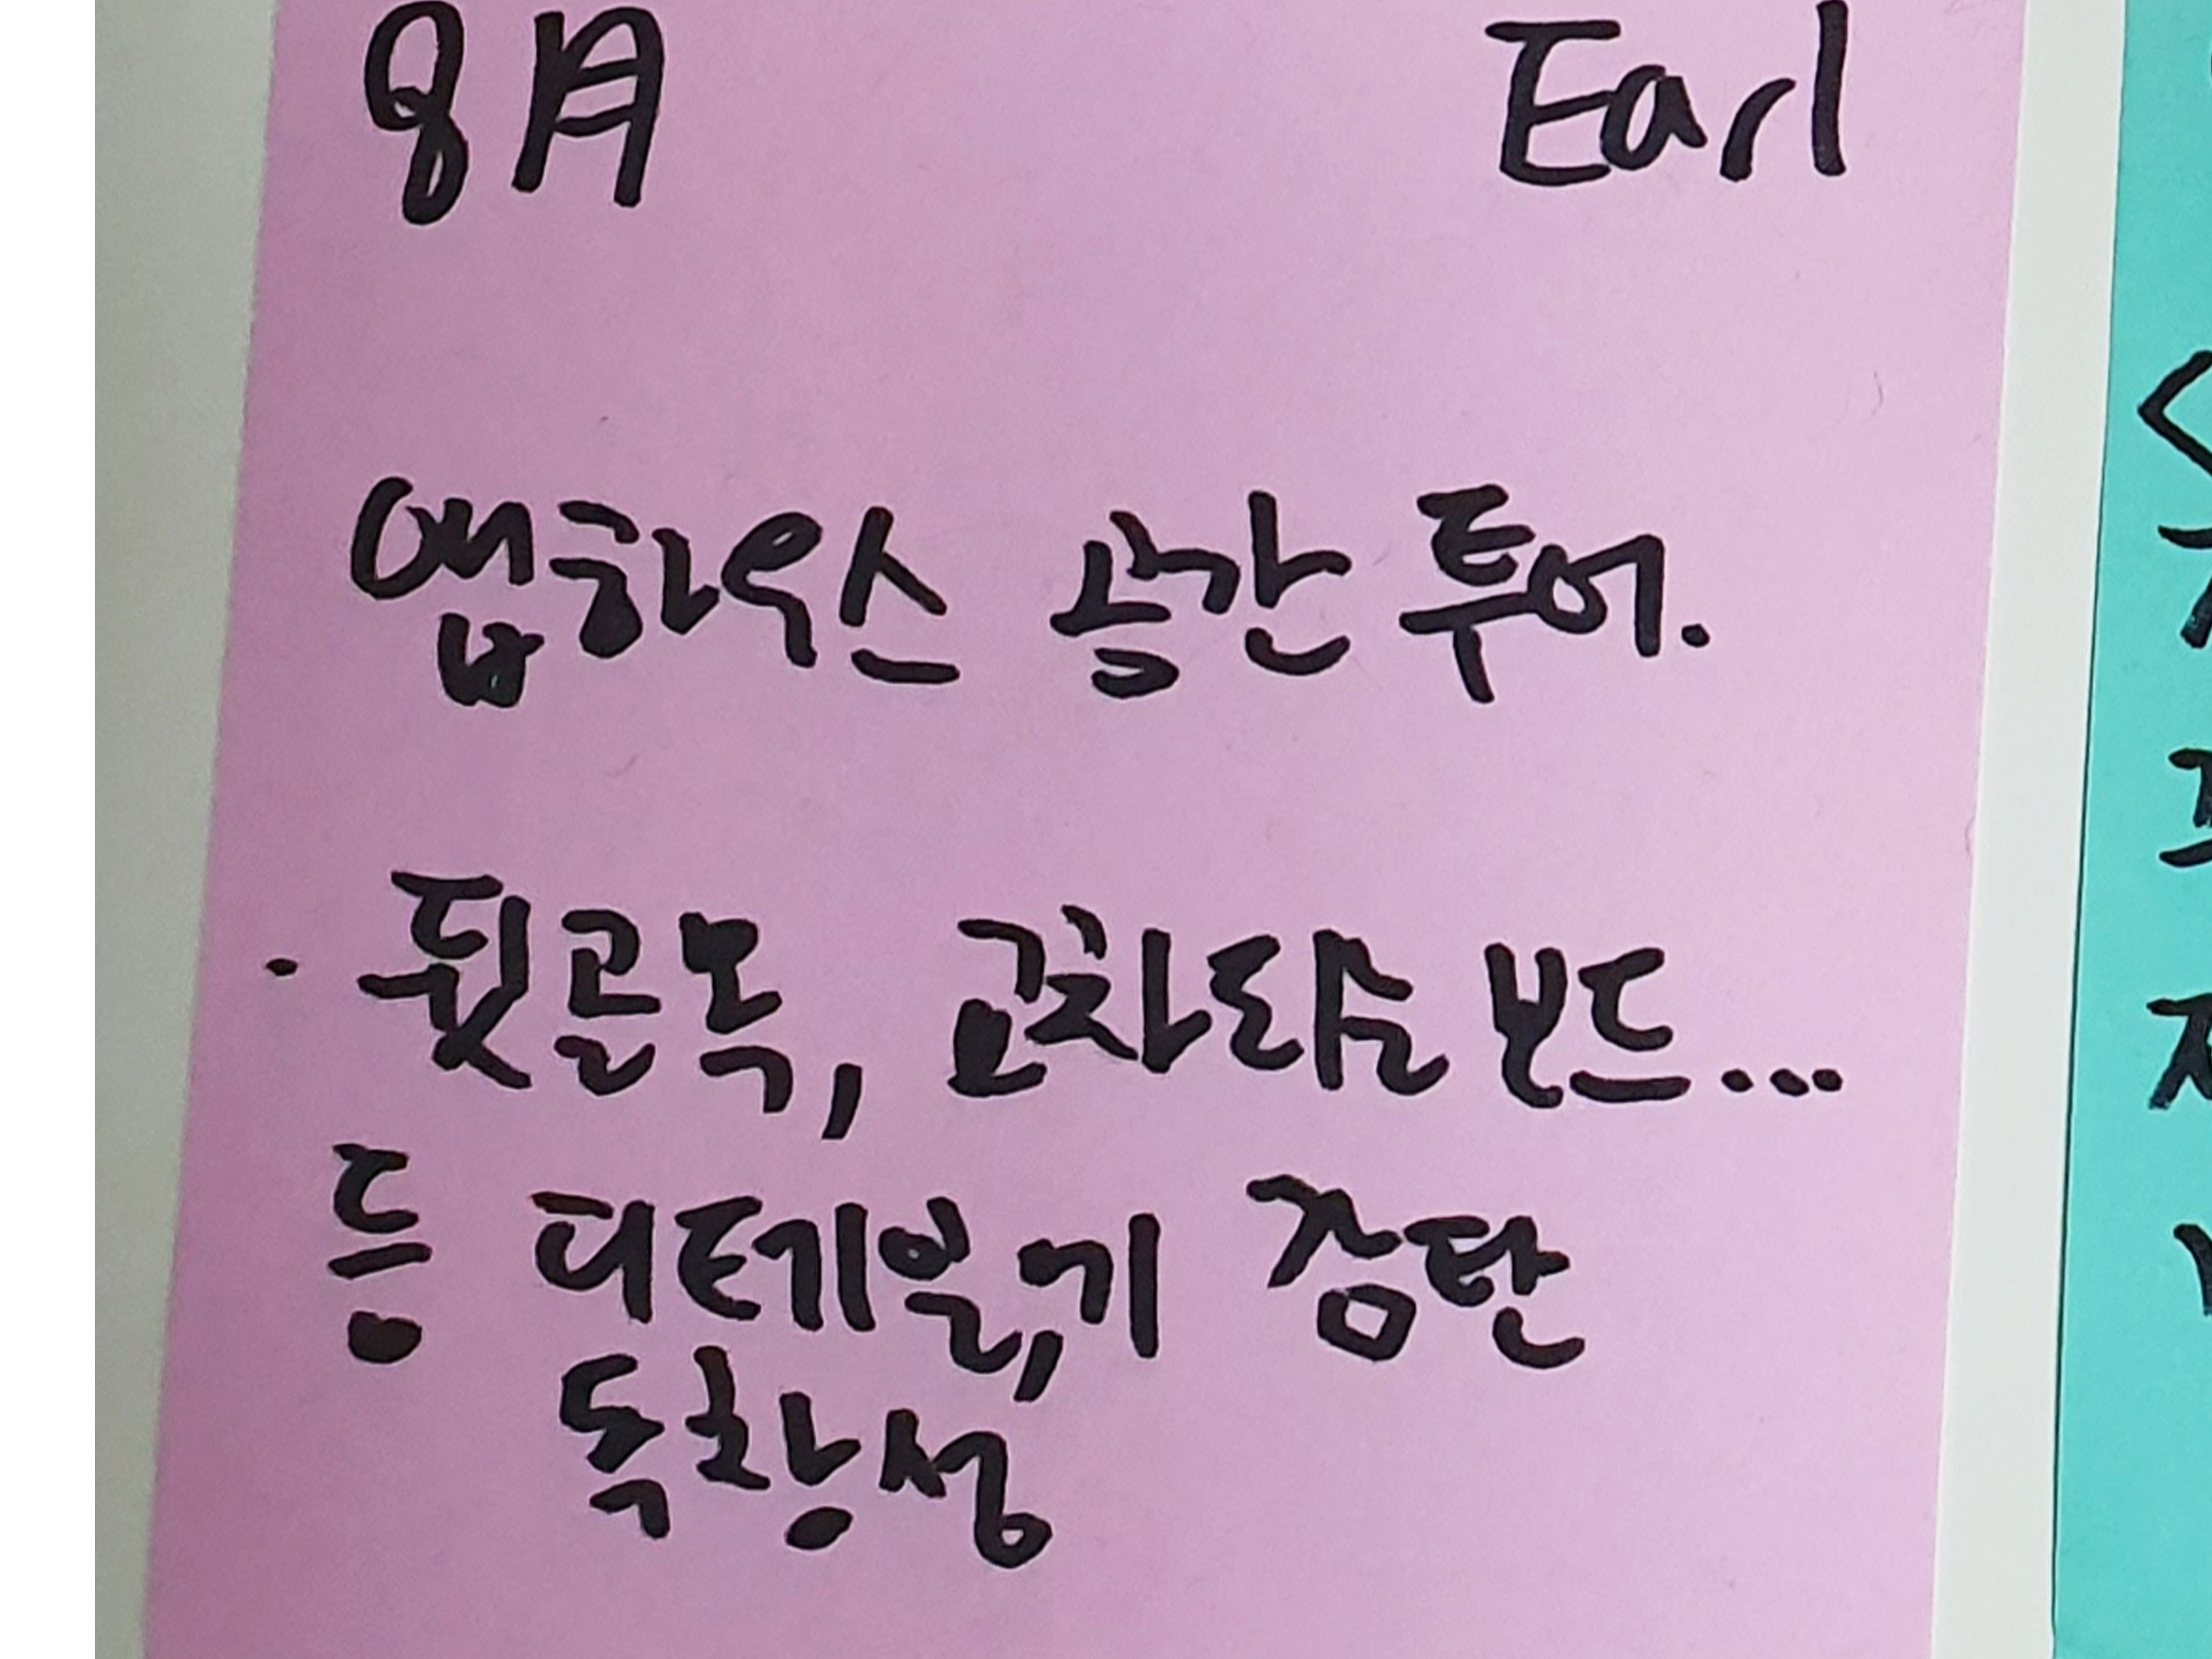 8月 Earl
앱하우스 공간 투어.
· 뒷골목, 교차타슨 보드...
등 디테일,에 감탄
독창성